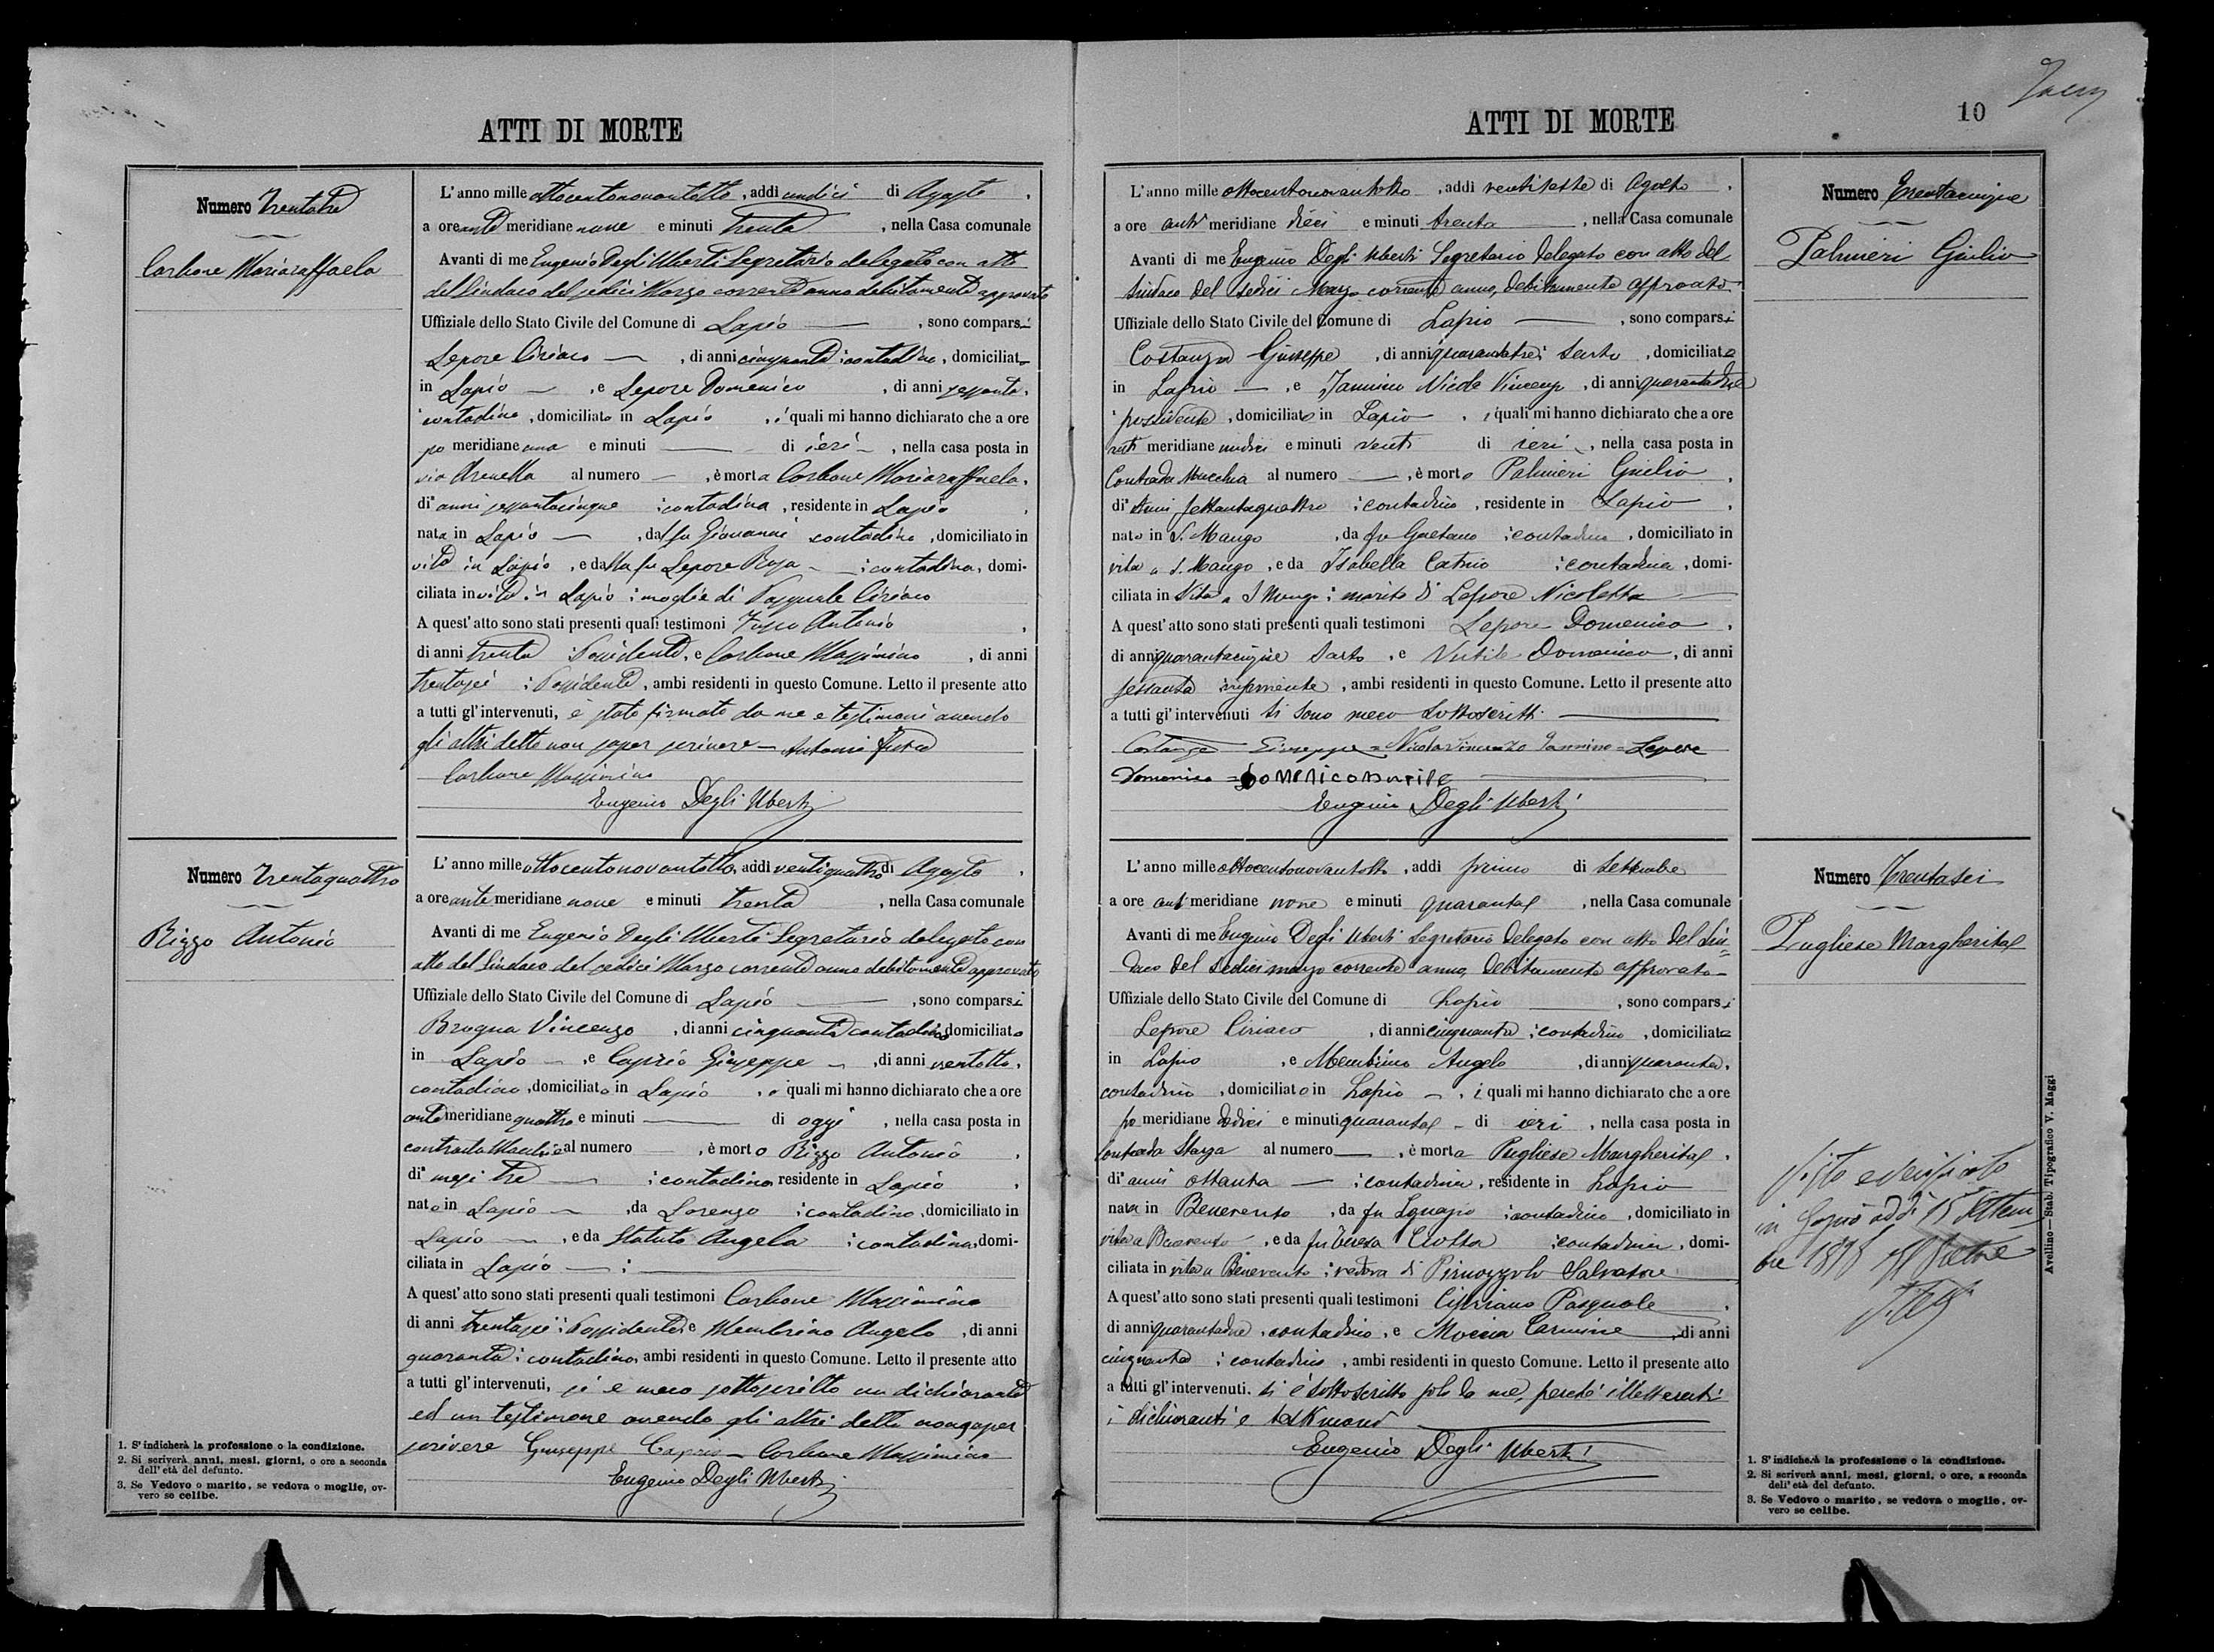 ATTI DI MORTE
Numero Trentatre
Carbone Mariaraffaela
L'anno mille ottocentonovantotto, addì undici di Agosto,
a ore ante meridiane nove e minuti trenta, nella Casa comunale
Avanti di me Eugenio Degli Uberti Segretario delegato con atto
del Sindaco del sedici Marzo corrente anno debitamente approvato
Uffiziale dello Stato Civile del Comune di Lapio, sono comparsi
Lepore Ciriaco, di anni cinquanta, contadino, domiciliato
in Lapio, e Lepore Domenico, di anni sessanta,
contadino, domiciliato in Lapio, i quali mi hanno dichiarato che a ore
po meridiane una e minuti — di ieri, nella casa posta in
via Arenella al numero —, è morta Carbone Mariaraffaela,
di anni sessantacinque contadina, residente in Lapio,
nata in Lapio, dal fu Giovanni contadino, domiciliato in
vita in Lapio, e dalla fu Lepore Rosa contadina, domi-
ciliata in vita in Lapio moglie di Pasquale Ciriaco
A quest'atto sono stati presenti quali testimoni Fusco Antonio,
di anni trenta Possidente, e Carbone Massimino, di anni
trentasei Possidente, ambi residenti in questo Comune. Letto il presente atto
a tutti gl'intervenuti, è stato firmato da me e testimoni avendo
gli altri detto non saper scrivere — Antonio Fusco
Carbone Massimino
Eugenio Degli Uberti
Numero Trentaquattro
Rizzo Antonio
L'anno mille ottocentonovantotto, addì ventiquattro di Agosto,
a ore ante meridiane nove e minuti trenta, nella Casa comunale
Avanti di me Eugenio Degli Uberti Segretario delegato con
atto del Sindaco del sedici Marzo corrente anno debitamente approvato
Uffiziale dello Stato Civile del Comune di Lapio, sono comparsi
Brogna Vincenzo, di anni cinquanta contadino, domiciliato
in Lapio, e Caprio Giuseppe, di anni ventotto,
contadino, domiciliato in Lapio, i quali mi hanno dichiarato che a ore
ante meridiane quattro e minuti — di oggi, nella casa posta in
contrada Macchia al numero —, è morto Rizzo Antonio,
di mesi tre contadino, residente in Lapio,
nato in Lapio, da Lorenzo contadino, domiciliato in
Lapio, e da Statuto Angela contadina, domi-
ciliata in Lapio
A quest'atto sono stati presenti quali testimoni Carbone Massimino
di anni trentasei Possidente, e Membrino Angelo, di anni
quaranta contadino, ambi residenti in questo Comune. Letto il presente atto
a tutti gl'intervenuti, si è meco sottoscritto un dichiarante
ed un testimone avendo gli altri detto non saper
scrivere Giuseppe Caprio — Carbone Massimino
Eugenio Degli Uberti
1. S'indicherà la professione o la condizione.
2. Si scriverà anni, mesi, giorni, o ore a seconda
dell'età del defunto.
3. Se Vedovo o marito, se vedova o moglie, ov-
vero se celibe.
ATTI DI MORTE
10
L'anno mille ottocentonovantotto, addì ventisette di Agosto,
a ore anti meridiane dieci e minuti trenta, nella Casa comunale
Avanti di me Eugenio Degli Uberti Segretario Delegato con atto del
Sindaco del sedici Marzo corrente anno, debitamente approvato
Uffiziale dello Stato Civile del Comune di Lapio, sono comparsi
Costanza Giuseppe, di anni quarantatre sarto, domiciliato
in Lapio, e Iannino Nicola Vincenzo, di anni quarantadue
possidente, domiciliato in Lapio, i quali mi hanno dichiarato che a ore
anti meridiane undici e minuti venti di ieri, nella casa posta in
Contrada Macchia al numero —, è morto Palmieri Giulio,
di anni settantaquattro contadino, residente in Lapio,
nato in S. Mango, da fu Gaetano contadino, domiciliato in
vita a S. Mango, e da Isabella contadina, domi-
ciliata in vita a S Mango marito di Lepore Nicoletta
A quest'atto sono stati presenti quali testimoni Lepore Domenico,
di anni quarantacinque sarto, e Nutile Domenico, di anni
sessanta, ambi residenti in questo Comune. Letto il presente atto
a tutti gl'intervenuti si sono meco sottoscritti
Costanza Giuseppe = Nicola Vincenzo Iannino = Lepore
Domenico = Domenico Nutile
Eugenio Degli Uberti
Numero Trentacinque
Palmieri Giulio
L'anno mille ottocentonovantotto, addì primo di Settembre,
a ore anti meridiane nove e minuti quaranta, nella Casa comunale
Avanti di me Eugenio Degli Uberti Segretario Delegato con atto del Sin=
daco del sedici marzo corrente anno, debitamente approvato
Uffiziale dello Stato Civile del Comune di Lapio, sono comparsi
Lepore Ciriaco, di anni cinquanta contadino, domiciliato
in Lapio, e Membrino Angelo, di anni quaranta,
contadino, domiciliato in Lapio, i quali mi hanno dichiarato che a ore
po meridiane dodici e minuti quaranta di ieri, nella casa posta in
Contrada Starza al numero —, è morta Pugliese Margherita,
di anni ottanta contadina, residente in Lapio
nata in Benevento, da fu Ignazio contadino, domiciliato in
vita a Benevento, e da fu Teresa contadina, domi-
ciliata in vita a Benevento vedova di Salvatore
A quest'atto sono stati presenti quali testimoni Cipriano Pasquale,
di anni quarantadue, contadino, e Moccia Carmine, di anni
cinquanta contadino, ambi residenti in questo Comune. Letto il presente atto
a tutti gl'intervenuti. si è sottoscritto solo da me, perché illetterati
i dichiaranti e testimoni
Eugenio Degli Uberti
Numero Trentasei
Pugliese Margherita
Visto e verificato
in Lapio addì 15 Settem
bre 1898
1. S'indicherà la professione o la condizione.
2. Si scriverà anni, mesi, giorni, o ore, a seconda
dell'età del defunto.
3. Se Vedovo o marito, se vedova o moglie, ov-
vero se celibe.
Avellino—Stab. Tipografico V. Maggi